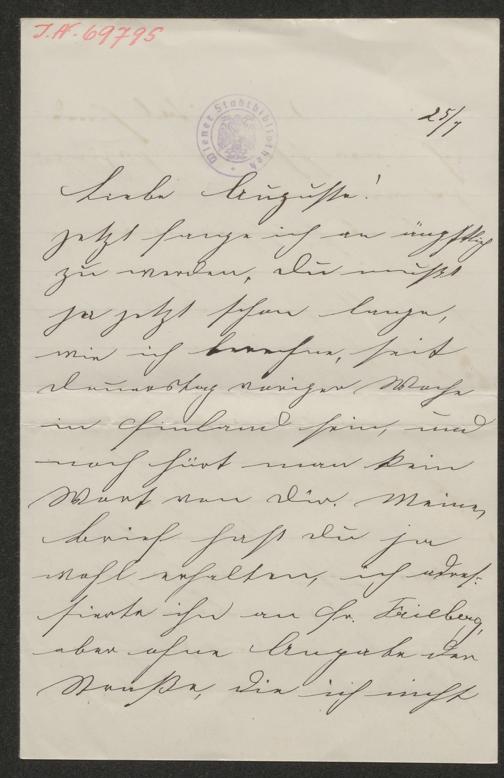 J.N. 69795
Wiener Stadtbibliothek
25/7
Liebe Auguste!
Jetzt fange ich an ängstlich
zu werden, Du mußt
ja jetzt schon lange,
wie ich berechne, seit
Donnerstag voriger Woche
in Finland sein, und
noch hört man kein
Wort von Dir. Meinen
Brief hast Du ja
wohl erhalten, ich adres-
sierte ihn an Fr. Feilberg,
aber ohne Angabe der
Straße, die ich nicht